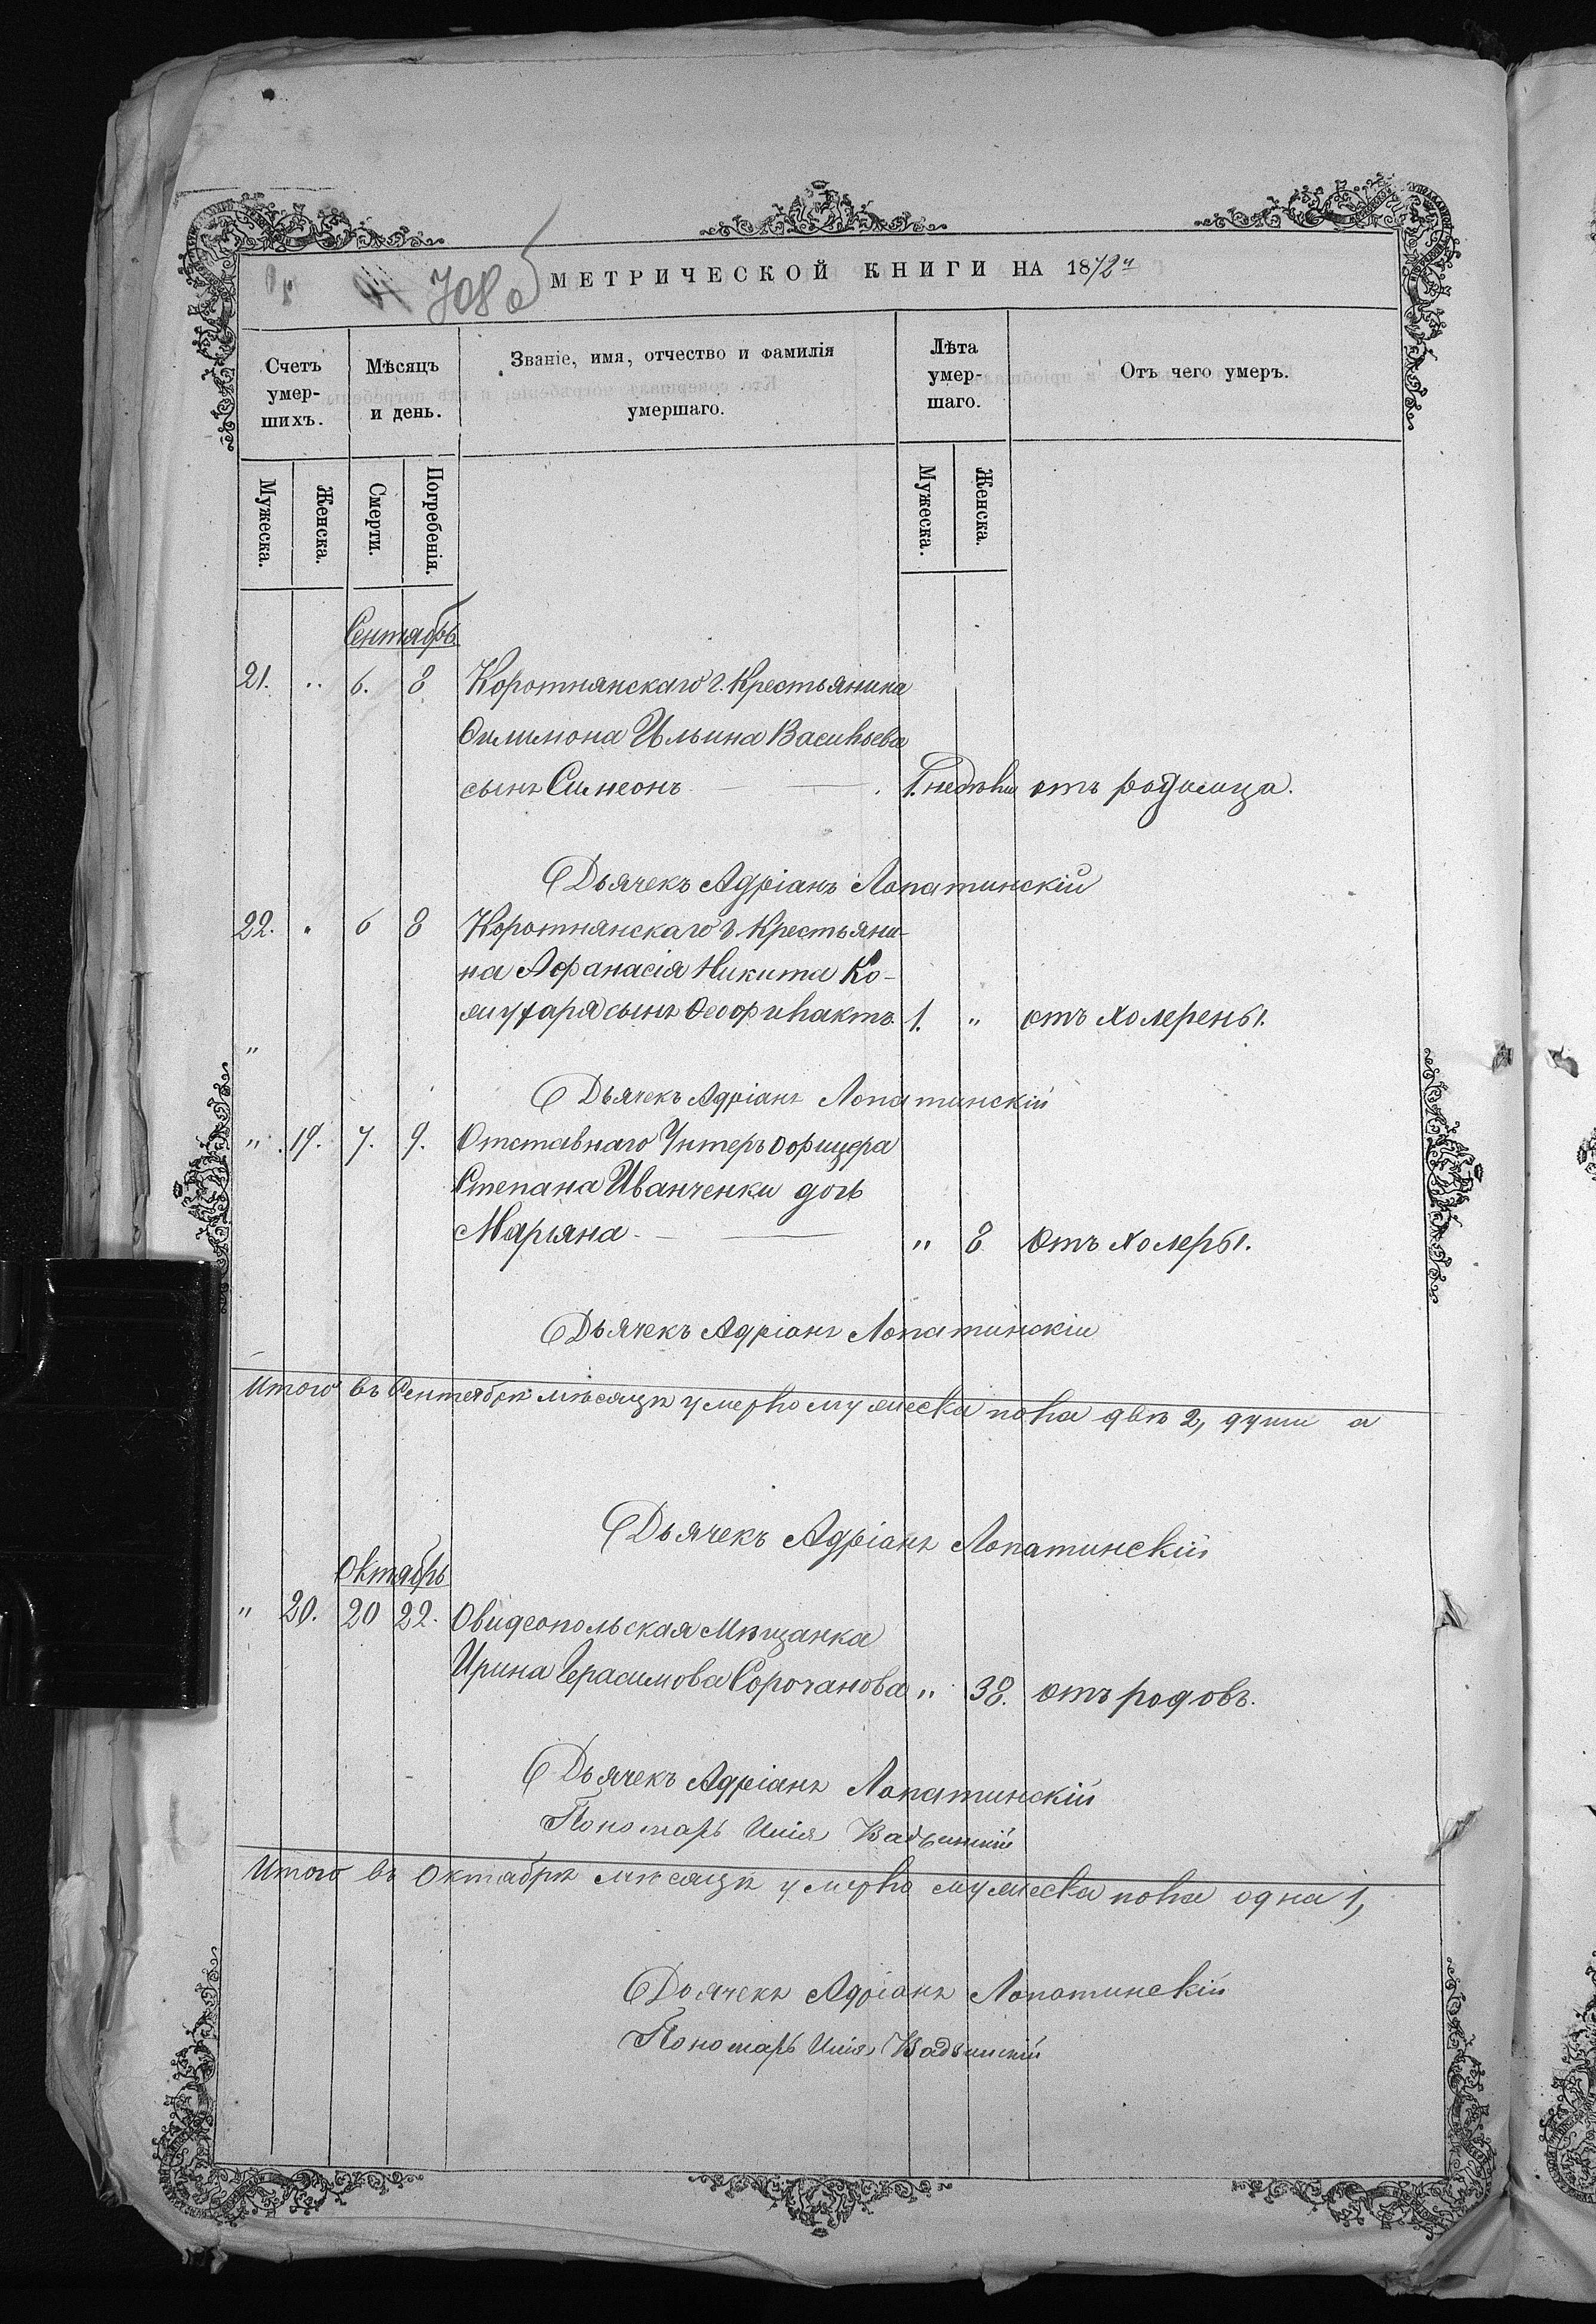 708 об
МЕТРИЧЕСКОЙ КНИГИ НА 1872й
Счетъ умер- шихъ.
Мѣсяцъ и день.
Званіе, имя, отчество и фамилія умершаго.
Лѣта умер- шаго.
Отъ чего умеръ.
Мужеска. Женска. Смерти. Погребенія. Мужеска. Женска.
Сентябрь
21. „ 6. 8 Коротнянскаго г. Крестьянина
Филимона Ильина Васильева
сынъ Симеонъ 1. недѣли отъ родимца.
Дьячекъ Адріанъ Лопатинскій
22. „ 6 8 Коротнянскаго г. Крестьяни-
на Афанасія Никита Ко-
сынъ Феофилактъ. 1. „ отъ холерены.
„
Дьячекъ Адріанъ Лопатинскій
„ 19. 7. 9. Отставнаго Унтеръ офицера
Степана Иванченки дочь
Марьяна „ 8 Отъ холеры.
Дьячекъ Адріанъ Лопатинскій
Итого въ Сентябрѣ мѣсяцѣ умерло мужеска пола двѣ 2, души а
Дьячекъ Адріанъ Лопатинскій
Октябрь
„ 20. 20 22. Овидеопольская Мѣщанка
Ирина Герасимова Сорочанова „ 38. отъ родовъ.
Дьячекъ Адріанъ Лопатинскій
Пономарь Илія
Итого въ Октябрѣ мѣсяцѣ умерло мужеска пола одна 1,
Дьячекъ Адріанъ Лопатинскій
Пономарь Илія